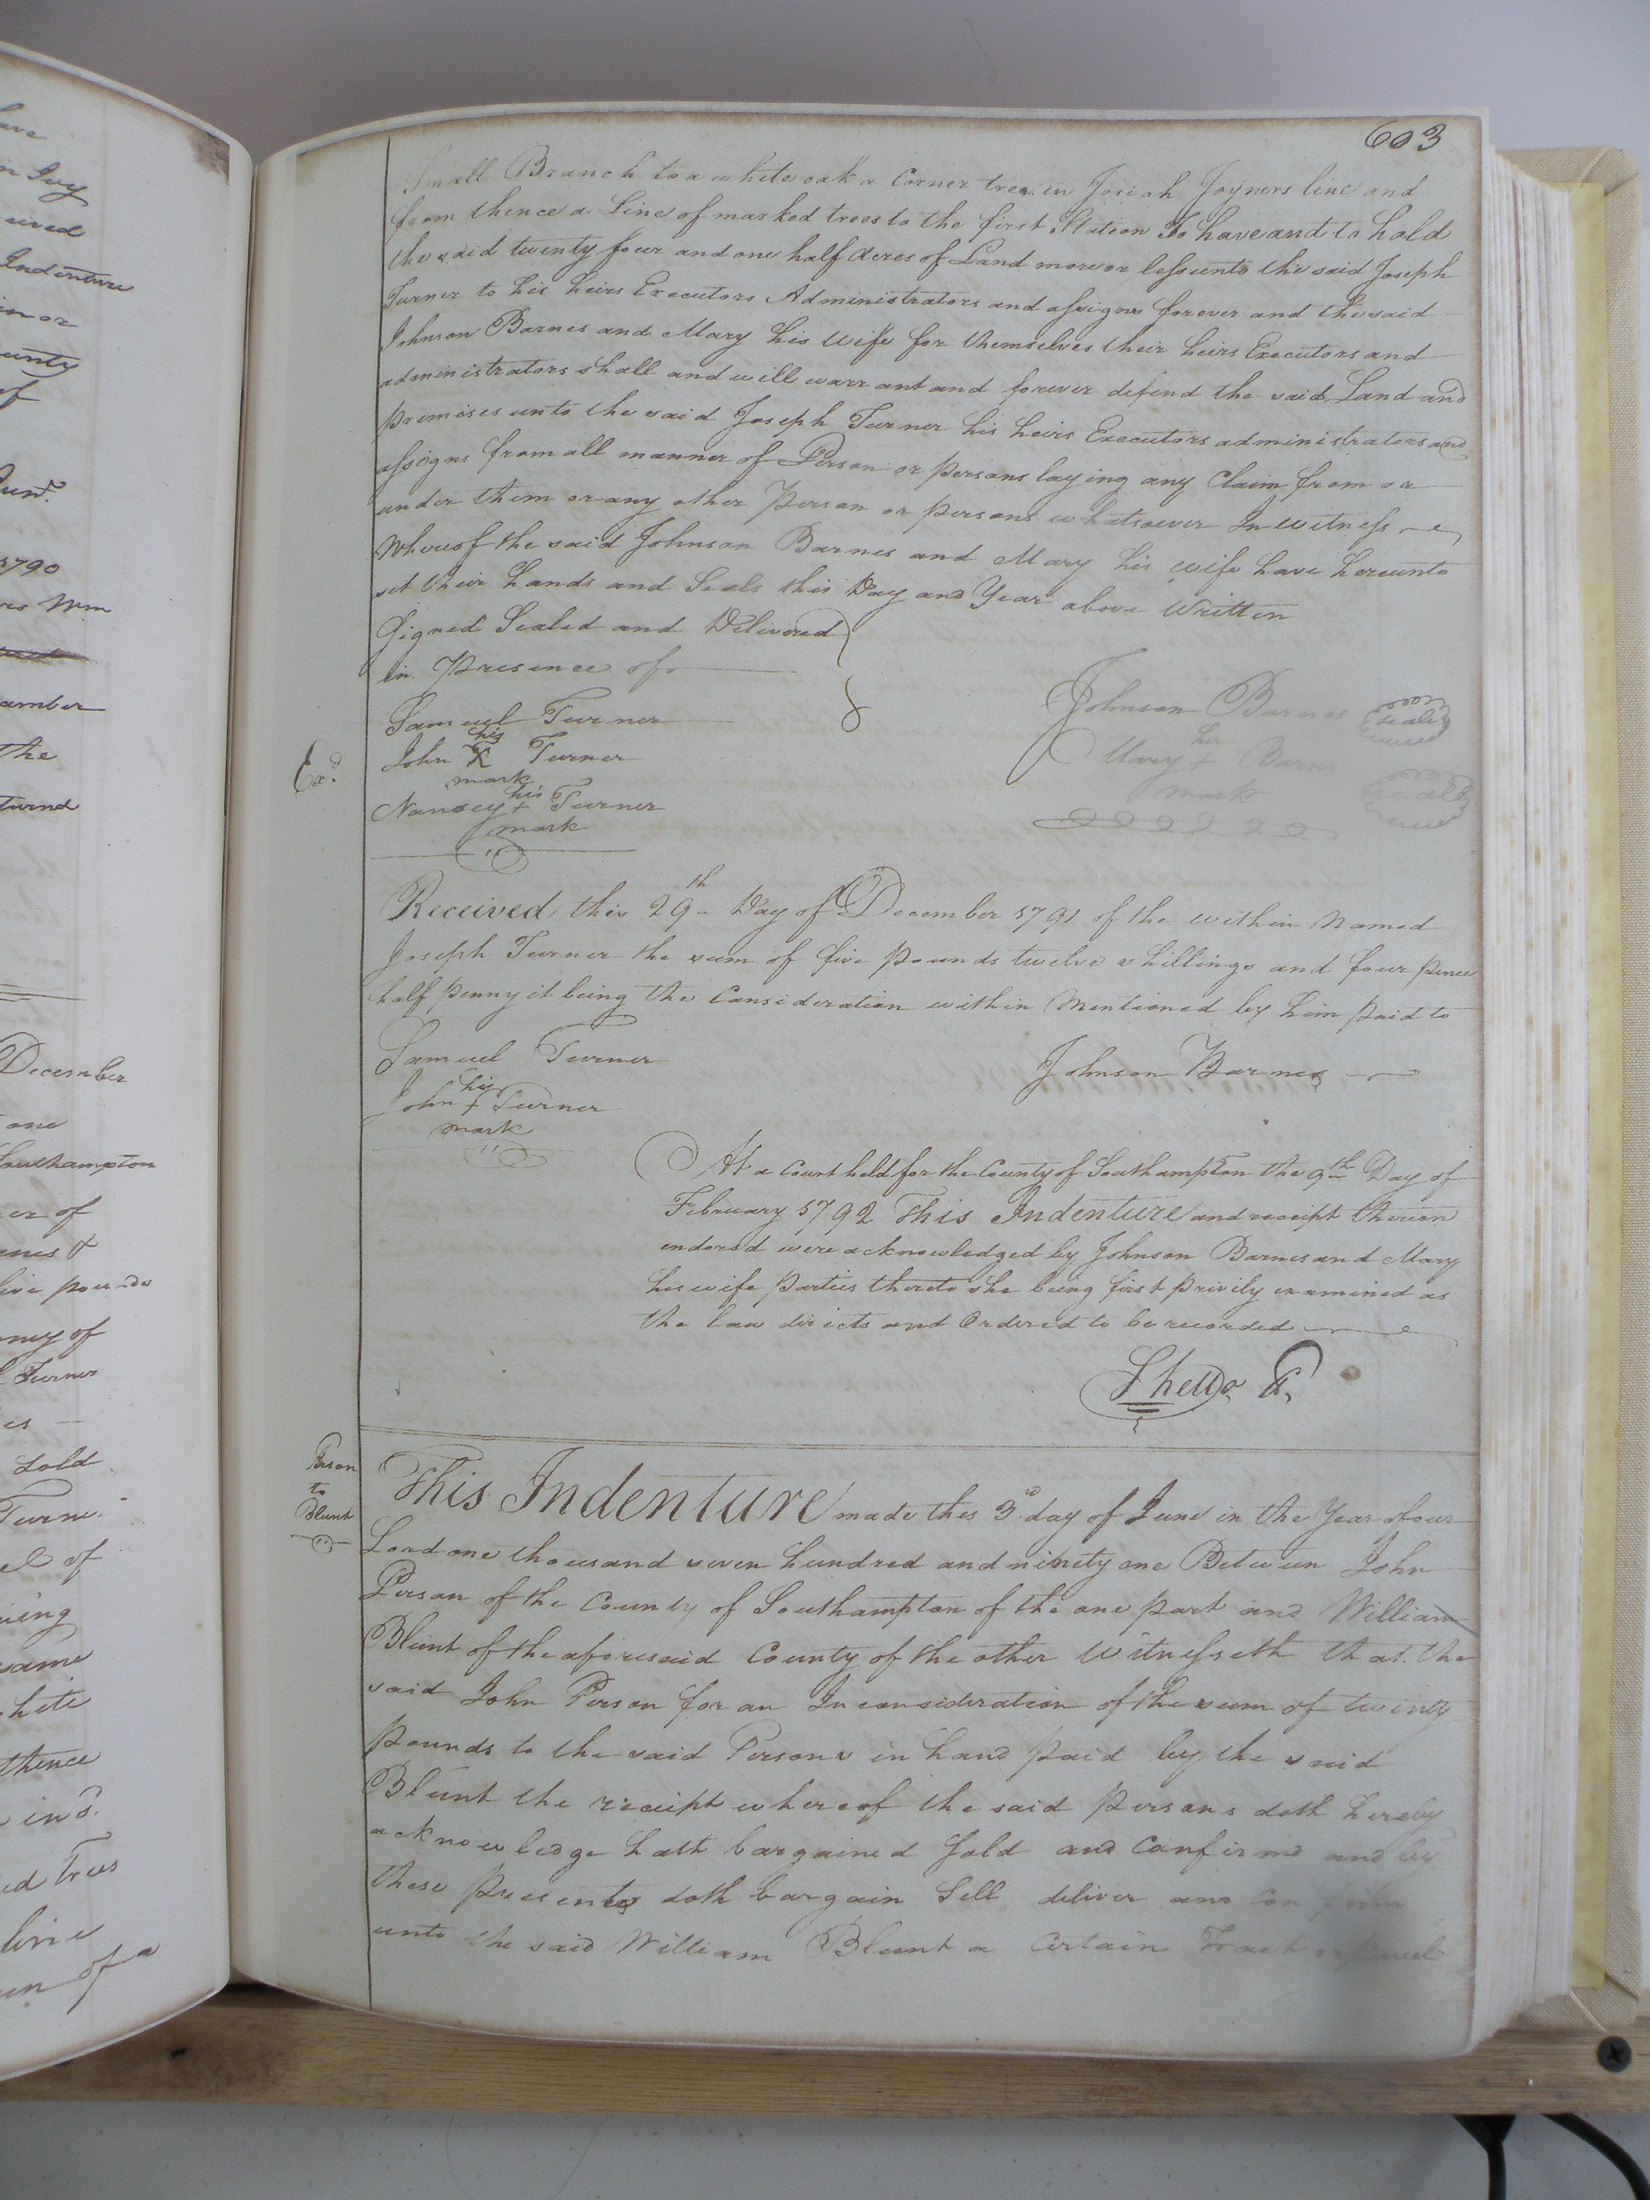 have
in Ivy
Indenture
in or
of
1790
Wm
the
turnd
December
one
Southampton
er of
ive pounds
ny of
Turner
es
sold
Turnr
l of
same
hite
thence
ed Trees
line
of a
603
Small Branch to a white oak a Corner tree in Josiah Joyners line and
from thence a Line of marked trees to the first Station To have and to hold
the said twenty four and one half Acres of Land more or less unto the said Joseph
Turner to his heirs Executors Administrators and assigns forever and the said
Johnson Barnes and Mary his wife for themselves their heirs Executors and
administrators shall and will warrant and forever defend the said Land and
premises unto the said Joseph Turner his heirs Executors administrators and
assigns from all manner of Person or persons laying any Claim from or
under them or any other Person or persons whatsoever In witness
Whereof the said Johnson Barnes and Mary his wife have hereunto
set their hands and Seals this Day and Year above Written
Signed Sealed and Delivered
in Presence of
Samuel Turner
Johnson Barnes Seal
his
John X Turner
mark
Exd
her
Mary + Barns
mark
Seal
his
Nancy + Turner
mark
Received this 29th Day of December 1791 of the within Named
Joseph Turner the sum of five pounds twelve shillings and four pence
half penny it being the Consideration within Mentioned by him paid to
Samuel Turner
Johnson Barnes
his
John + Turner
mark
At a Court held for the County of Southampton the 9th Day of
February 1792 This Indenture and receipt thereon
endorsd were acknowledged by Johnson Barnes and Mary
his wife parties thereto she being first privily examined as
the law directs and Ordered to be recorded
Person
to
Blunt
This Indenture made this 3d day of June in the Year of our
Lord one thousand seven hundred and ninety one Between John
Person of the County of Southampton of the one part and William
Blunt of the aforesaid County of the other Witnesseth that the
said John Person for an In consideration of the sum of twenty
pounds to the said Persons in hand paid by the said
Blunt the receipt whereof the said persons doth hereby
acknowledge hath bargained Sold and Confirmd and by
these presents doth bargain Sell deliver and confirm
unto the said William Blunt a Certain Tract or parcel